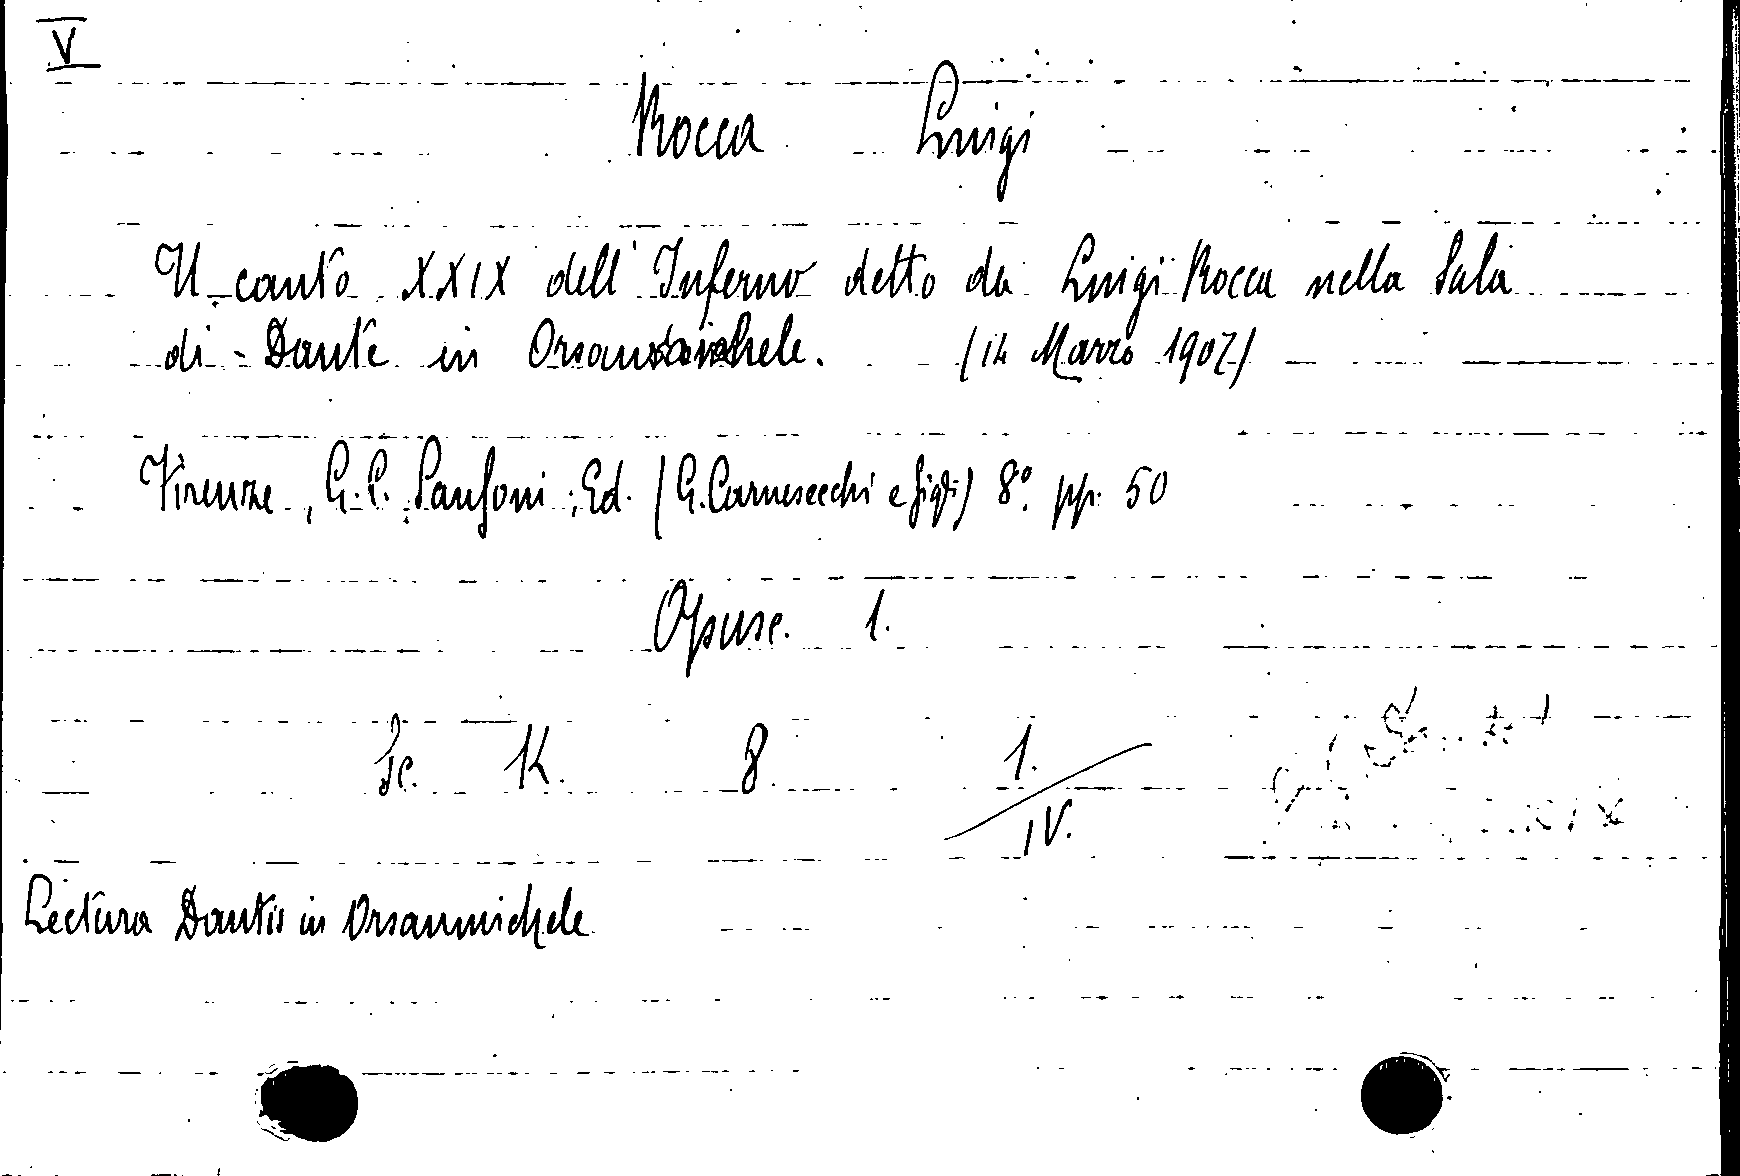 V
Rocca Luigi
Il canto XXIX dell'Inferno detto da Luigi Rocca nella Sala
di Dante in Orsanmichele. (14 Marzo 1907)
Firenze, G. C. Sansoni, Ed. (G. Carnesecchi e figli) 8° pp. 50
Opusc. 1.
Sc. K. 8. 1./IV.
Lectura Dantis in Orsanmichele